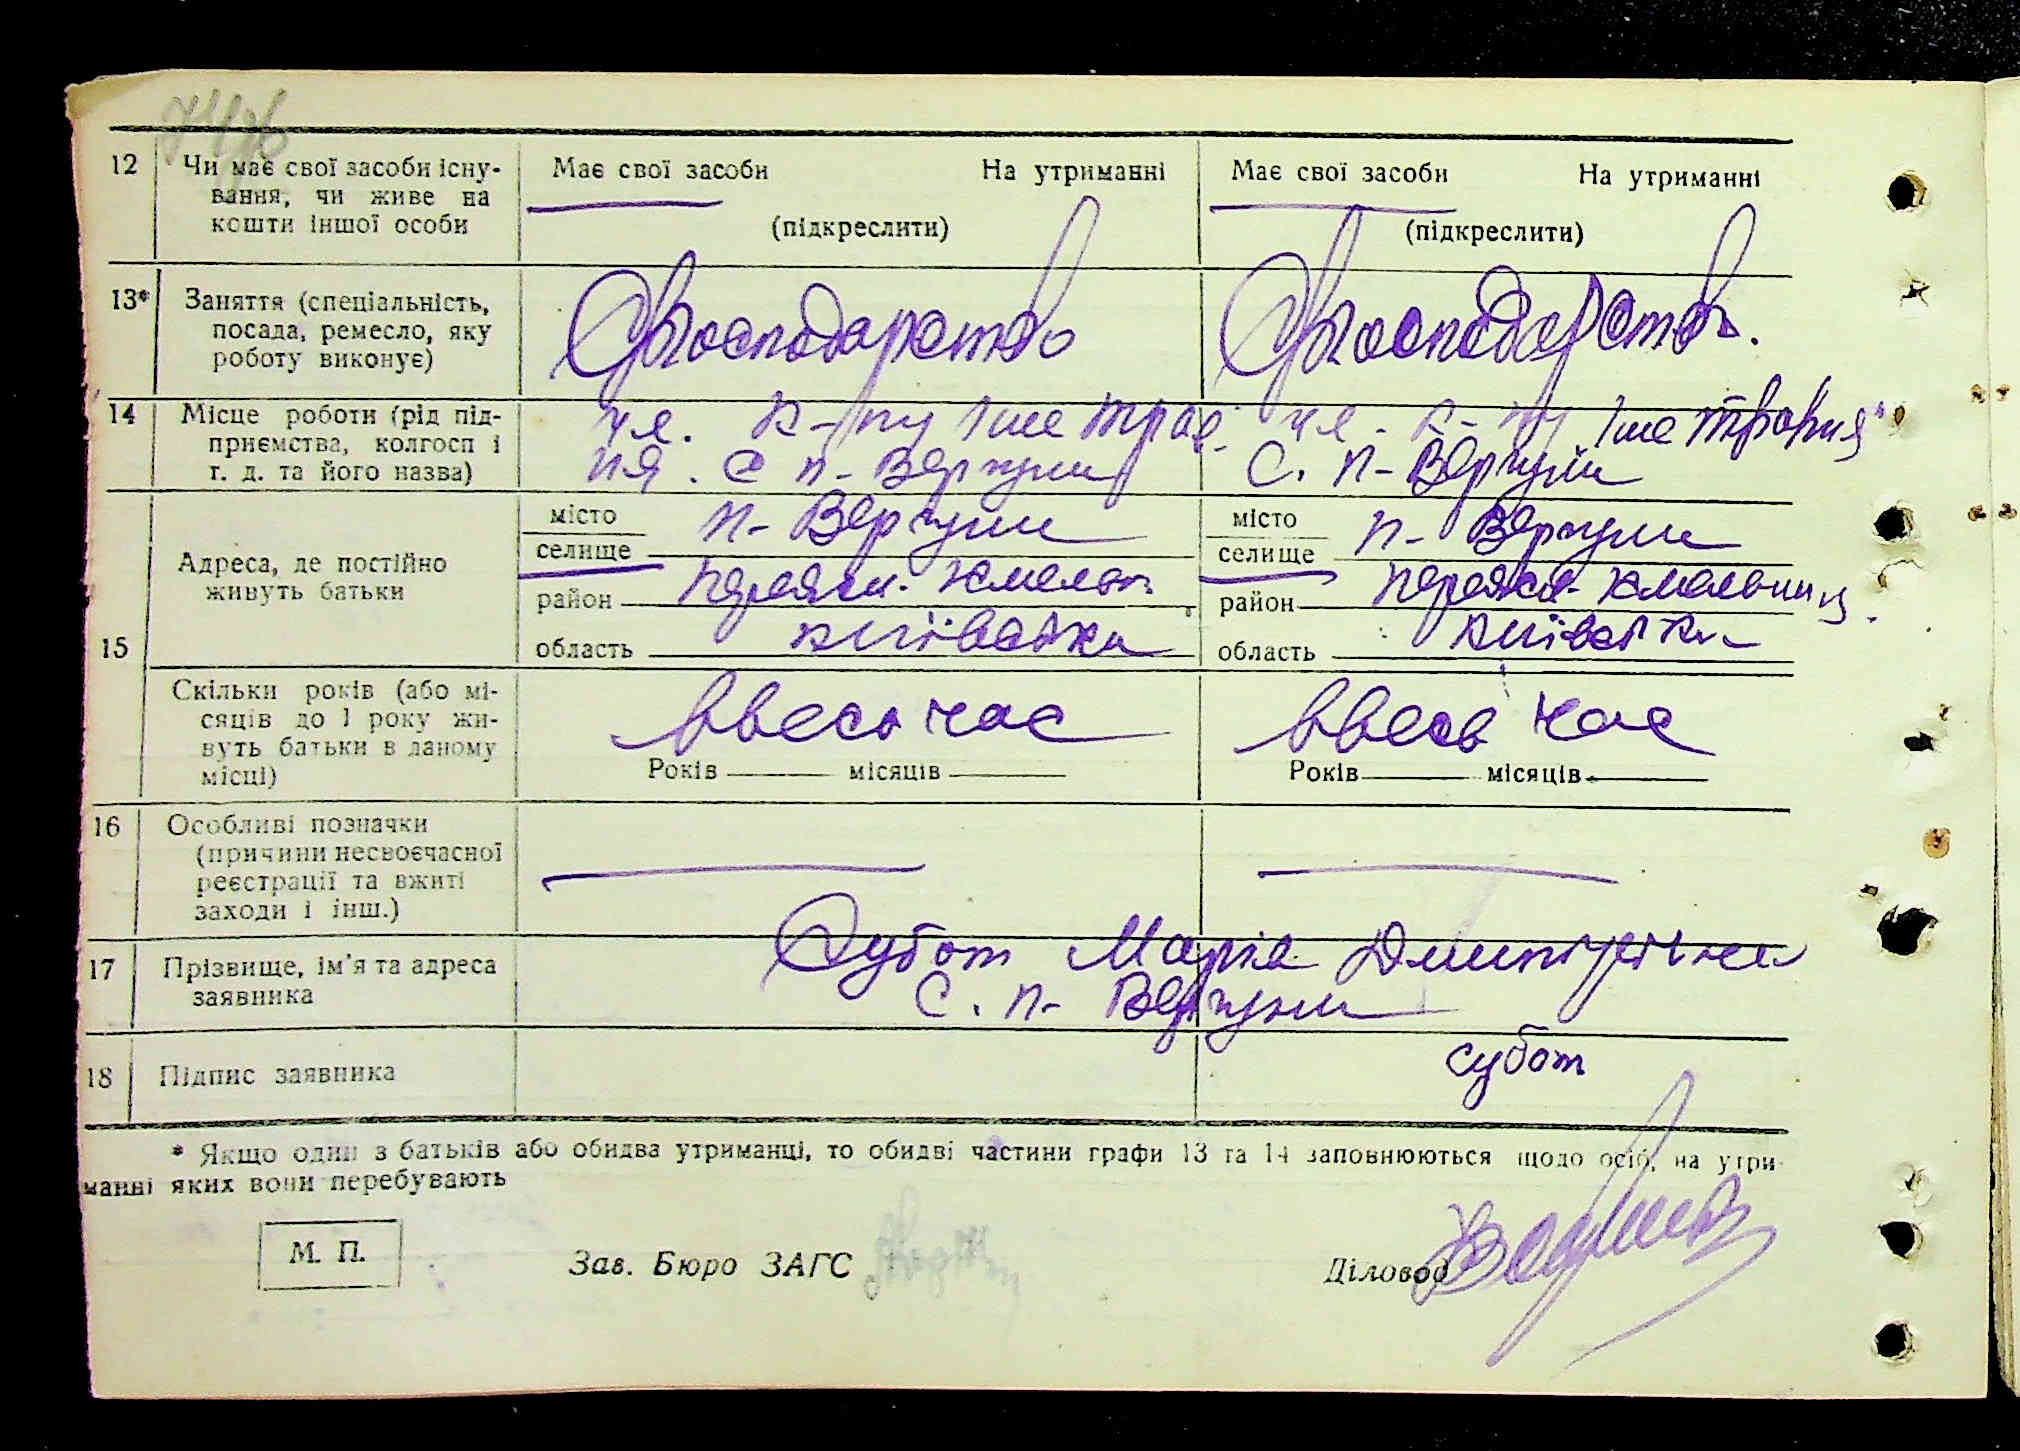 12 Чи має свої засоби існу- Має свої засоби На утриманні Має свої засоби На утриманні
вання, чи живе на
кошти іншої особи (підкреслити) (підкреслити)
13* Заняття (спеціальність,
посада, ремесло, яку
роботу виконує)
14 Місце роботи (рід під- чл. к-пу 1ше Трав- чл. к-пу 1ше Травня"
приємства, колгосп і
т. д. та його назва) ня. с п-Вергуни С. п-Вергуни
15 Адреса, де постійно
живуть батьки
місто п-Вергуни місто п-Вергуни
селище селище
район Переясл. Хмельн район Переясл. Хмельниц.
область Київська область Київська
Скільки років (або мі-
сяців до 1 року жи-
вуть батьки в даному
місці)
ввесь час ввесь час
Років місяців Років місяців
16 Особливі позначки
(причини несвоєчасної
реєстрації та вжиті
заходи і інш.)
17 Прізвище, ім'я та адреса Субот Марія Дмитрівна
заявника С. п-Вергуни
18 Підпис заявника субот
* Якщо один з батьків або обидва утриманці, то обидві частини графи 13 та 14 заповнюються щодо осіб, на утри-
манні яких вони перебувають
М. П. Зав. Бюро ЗАГС Діловод